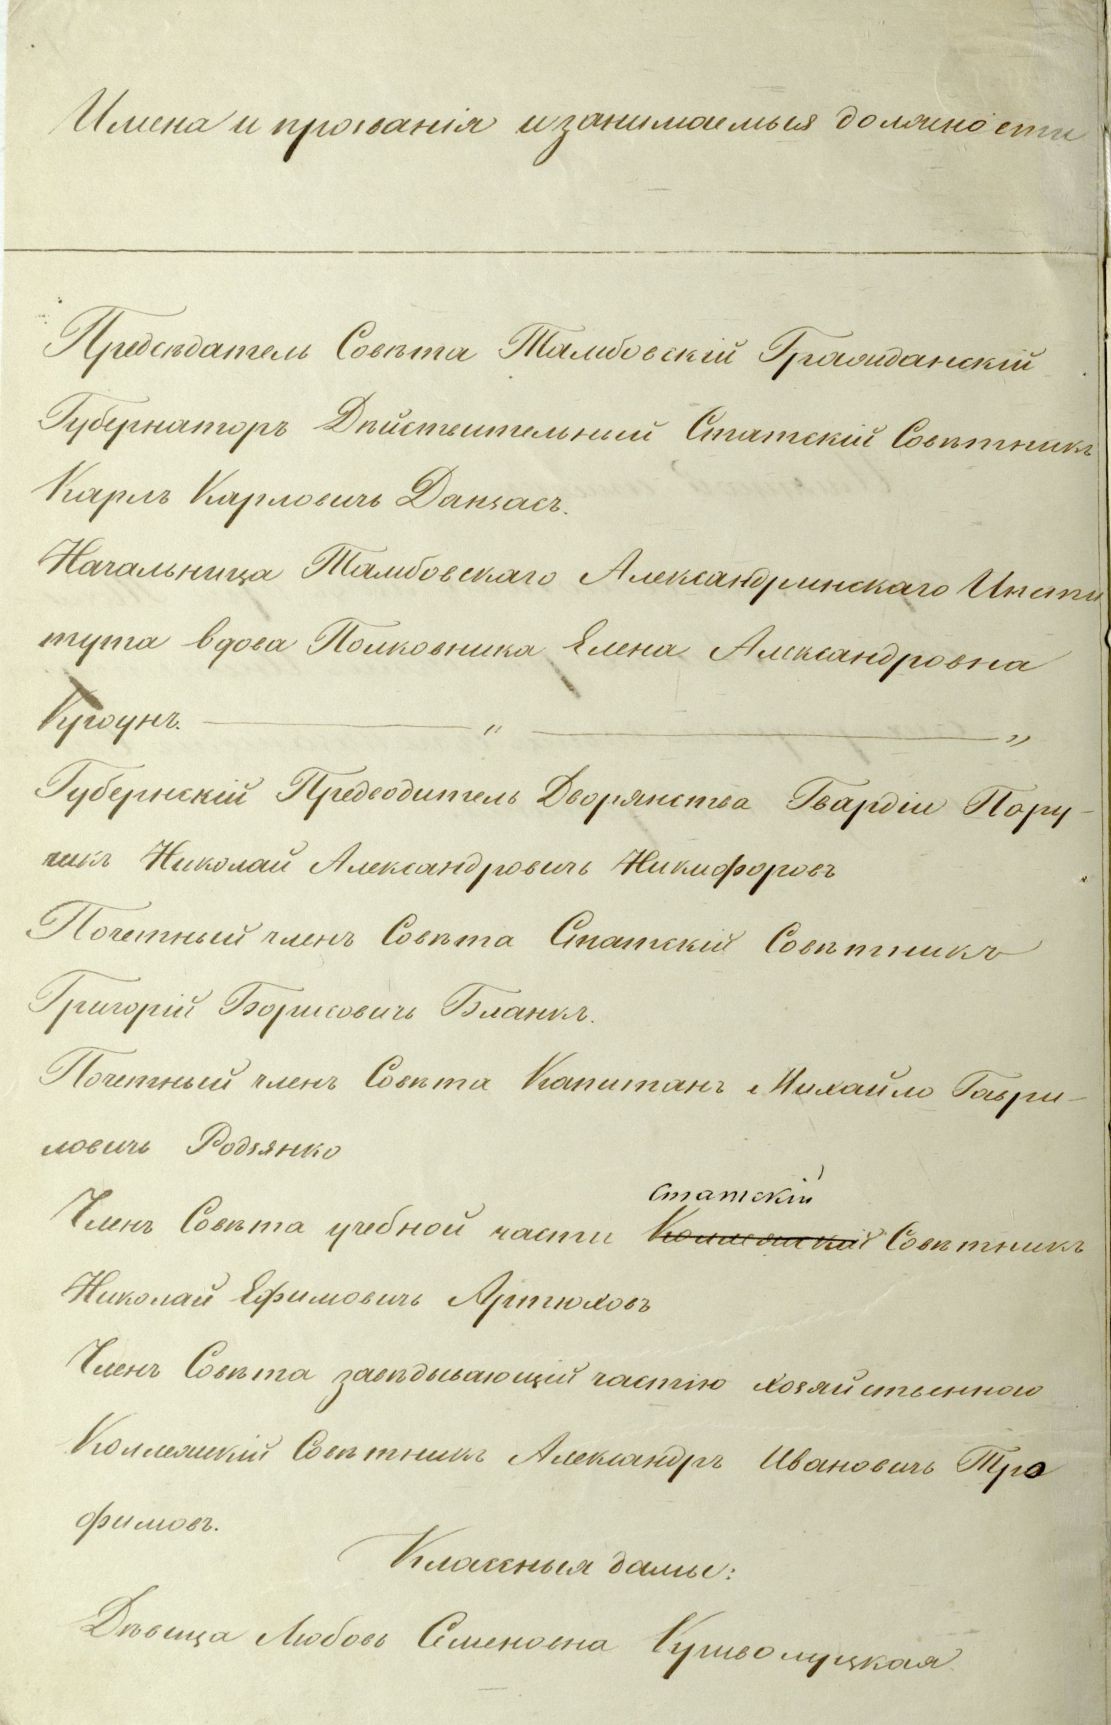 Имена и прозванія и занимаемыя должности
Предсѣдатель Совѣта Тамбовскій Гражданскій
Губернаторъ Дѣйствительный Статскій Совѣтникъ
Карлъ Карловичъ Данзасъ.
Начальница Тамбовскаго Александринскаго Инсти
тута вдова Полковника Елена Александровна
" "
Губернскій Предводитель Дворянства Гвардіи Пору-
чикъ Николай Александровичъ Никифоровъ
Почетный членъ Совѣта Статскій Совѣтникъ
Григорій Борисовичъ Бланкъ.
Почетный членъ Совѣта Капитанъ Михайло Гаври-
ловичъ Родзянко
статскій
Членъ Совѣта учебной части Коллежскій Совѣтникъ
Николай Ефимовичъ Артюховъ
Членъ Совѣта завѣдывающій частію хозяйственною
Коллежскій Совѣтникъ Александръ Ивановичъ Тро
фимовъ.
Классныя дамы:
Дѣвица Любовь Семеновна